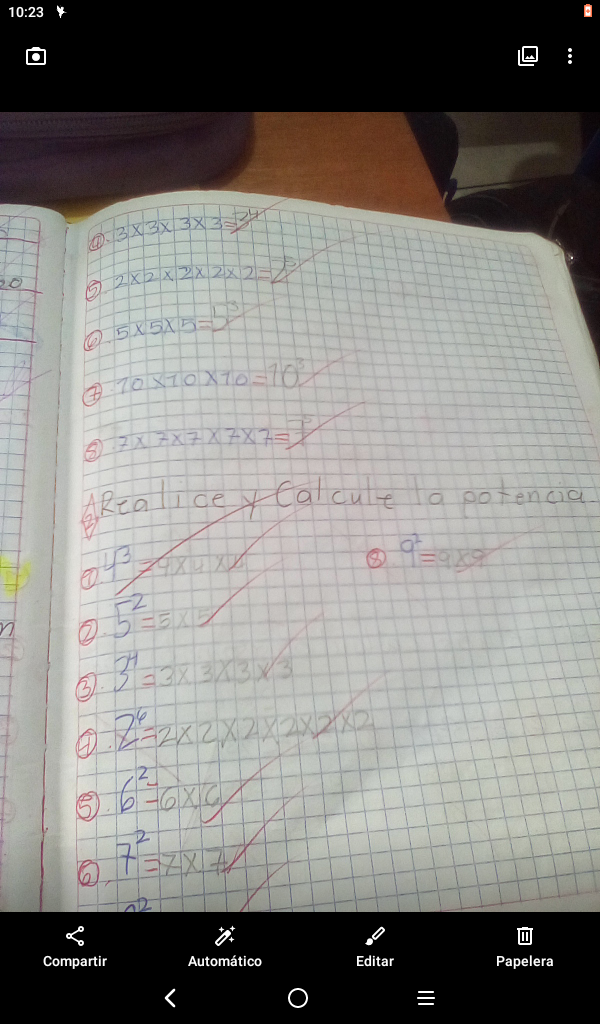 10:23
④. 3×3×3×3=3⁴
⑤. 2×2×2×2×2=2⁵
⑥. 5×5×5=5³
⑦. 10×10×10=10³
⑧. 7×7×7×7×7=7⁵
Realice y Calcule la potencia.
①. 4³=4×4×4
⑧ 9²=9×9
②. 5²=5×5
③. 3⁴=3×3×3×3
④. 2⁶=2×2×2×2×2×2
⑤. 6²=6×6
⑥. 7²=7×7
Compartir
Automático
Editar
Papelera